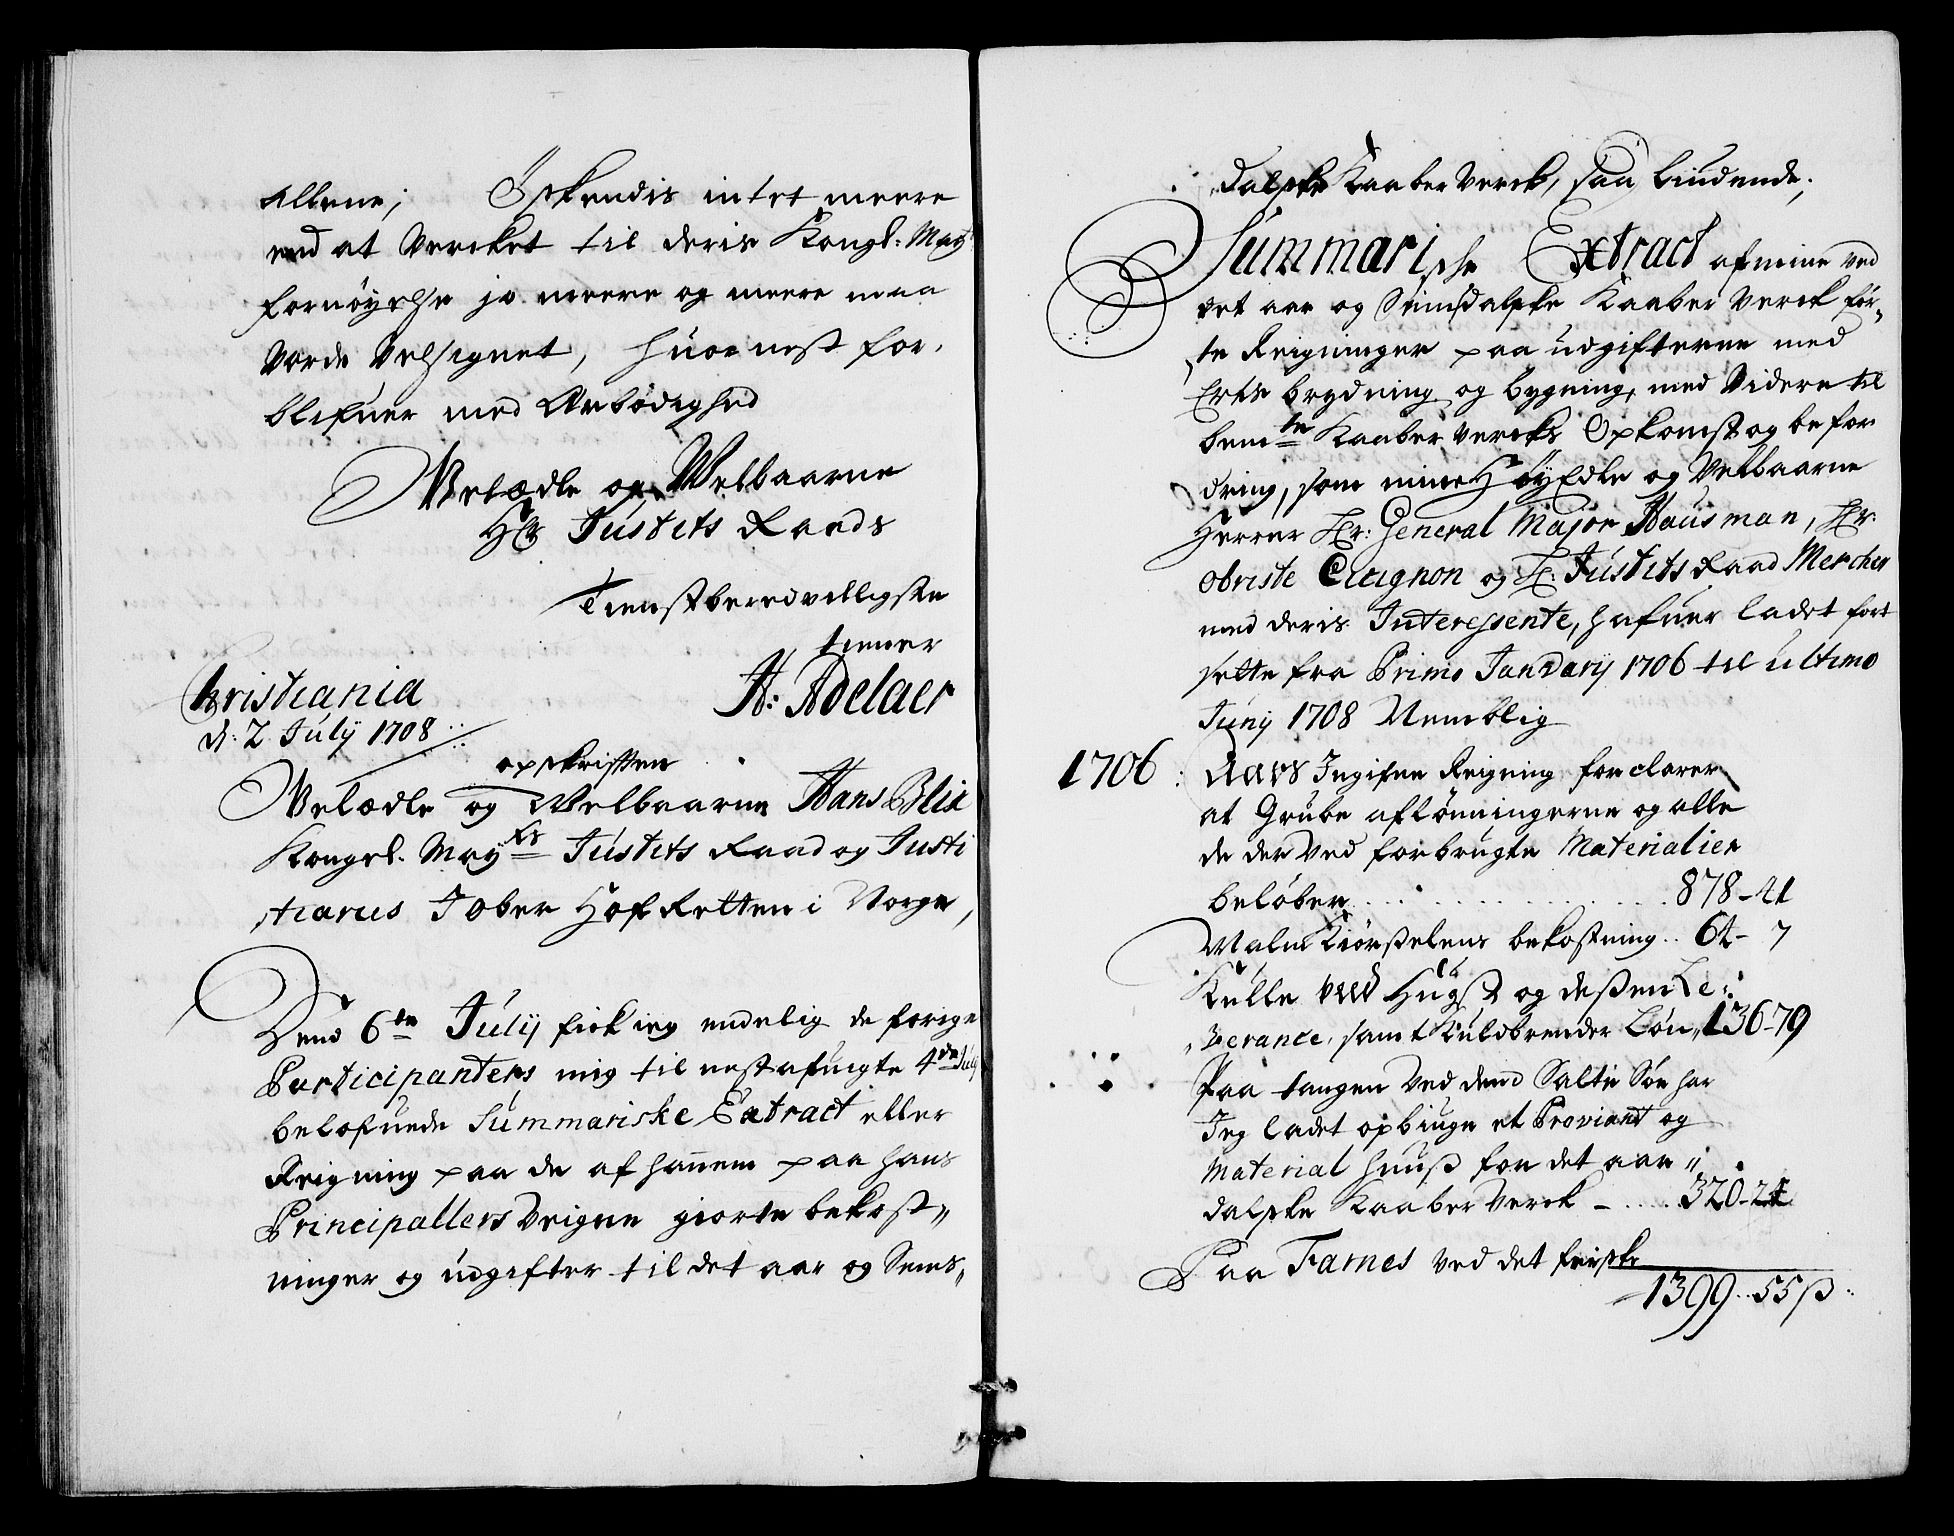 allene; Ønskendis intet meere
end at Vercket til deris Kongl: May
fornøyelse jo meere og meere maa
vorde Velsignet, huornest for,
blifuer med Ærbødighed
Velædle og Welbaarne
Hr Justits Raads
Tienstberedvilligste
tiener
Christiania
A: Adelaer
d: 2 July 1708
opskriften
Velædle og Welbaarne Hans Blix
Kongel. Mayts Justits Raad og Justi
tiarius I Ober Hof Retten i Norge,
Dend 6te July fick ieg endelig de forige
Participanters mig til nest afuigte 4de July
belofuede Summariske Extract eller
Reigning paa de af hannem paa hans
Principallers Veigne giorte bekost„
ninger og udgifter til det aar og Sems„
dalske Kaaber Verck, saa liudende;
Summarische Extract af mine ved
det aar og Semsdalske Kaaber Verck før„
„te Reigninger paa udgifterne med
Erts brydning og bygning, med Videre til
bemte Kaaber vercks Opkomst og befor
dring, som mine HøyEdle og Velbaarne
Herrer Hr: General Major Hausman, Hr:
obriste Cicignon og H: Justits Raad Mercher
med deris Interessente, hafuer ladet fort
sette fra Primo Janvarij 1706 til ultimo
Junij 1708 Nemblig
1706: Aars Ingifne Reigning forclarer
at Grube aflønningerne og alle
de der Ved forbrugte Materialier
beløber . . . . . . . . 878-41
Malm Kiørselens bekostning .. 64- 7
Kulle ved Hugst og desten Le„
„verance, samt Kulbrender Løn, 136-79
Paa tangen Ved dend Salte Søe har
Jeg ladet opbiuge et Proviant og
Material huus for det aar„
dalske Kaaber Verck - .... 320-24
Paa Farnes ved det ferske
1399..55 ß: